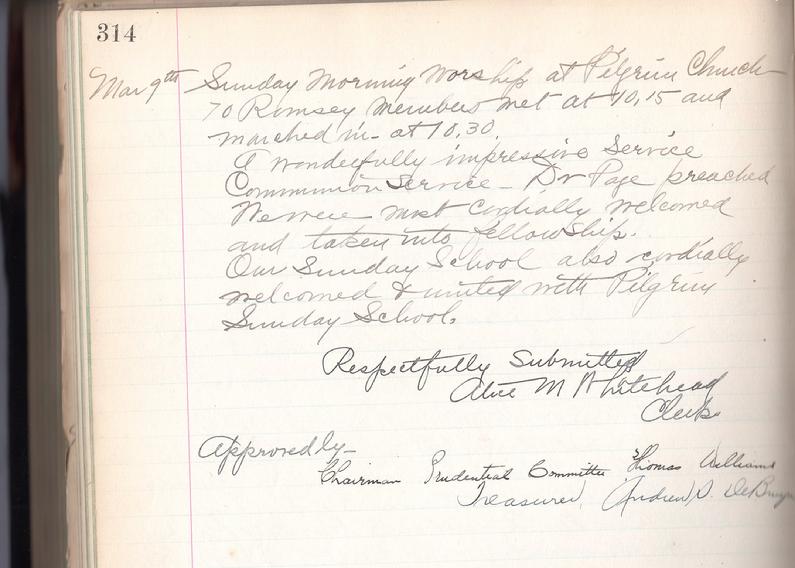 314
Mar 9th Sunday Morning Worship at Pilgrim Church
70 Romsey members met at 10,15 and
marched in - at 10,30.
A wonderfully impressive Service
Communion Service - Dr Page preached
We were most cordially welcomed
and taken into fellowship.
Our Sunday School also cordially
welcomed & united with Pilgrim
Sunday School.
Respectfully Submitted
Alice M Whitehead
Clerk
Approved by -
Chairman Prudential Committee Thomas Williams
Treasurer, Andrew D. DeBruyn